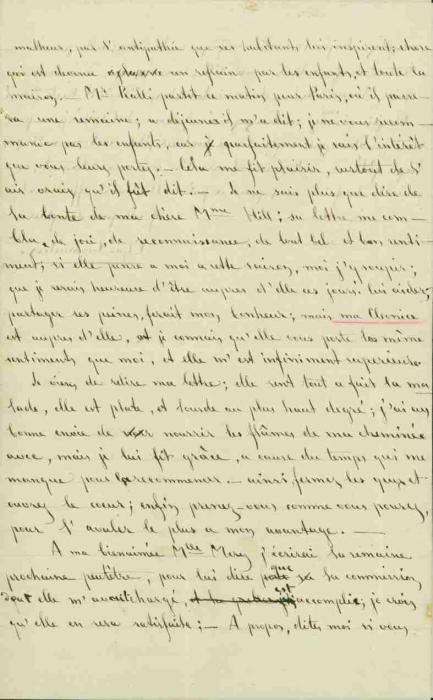 malheur, par l'antipathie que ses habitants lui inspirent; chose
qui est devenue un refrain par les enfants, et toute la
maison. — Mr Ralli partit ce matin pour Paris, où il passe-
ra une semaine; a déjeuner il m'a dit; je ne vous recom-
mande pas les enfants, car je parfaitement je sais l'intérêt
que vous leurs portez. — Cela me fit plaisir, surtout de l'
air vrais qu'il fût dit. — Je ne sais plus que dire de
la bonté de ma chère Mme Hill; sa lettre me com-
bla, de joie, de reconnaissance, de tout bel et bon senti-
ment; si elle pense a moi a cette saison, moi j'y soupire;
que je serais heureuse d'être aupres d'elle ces jours. lui aider,
partager ses peines, ferait mon bonheur; mais ma Cleonice
est aupres d'elle, et je connais qu'elle vous porte les même
sentiments que moi, et elle m'est infiniment superieure.
Je viens, de relire ma lettre; elle sent tout a fait la ma
lade, elle est plate, et lourde au plus haut degré; j'ai eu
bonne envie de nourrir les flâmes de ma cheminée
avec, mais je lui fit grâce, a cause du temps qui me
manque pour la recommencer — ainsi fermez les yeux et
ouvrez le cœur; enfin prenez-vous comme vous pourez,
pour l'avaler le plus a mon avantage. —
A ma bienaimée Mlle Mery j'écrirai la semaine
prochaine peutêtre, pour lui dire que sa commission,
dont elle m'avait chargé, est accomplie; je crois
qu'elle en sera satisfaite; — A propos, dites moi si vous